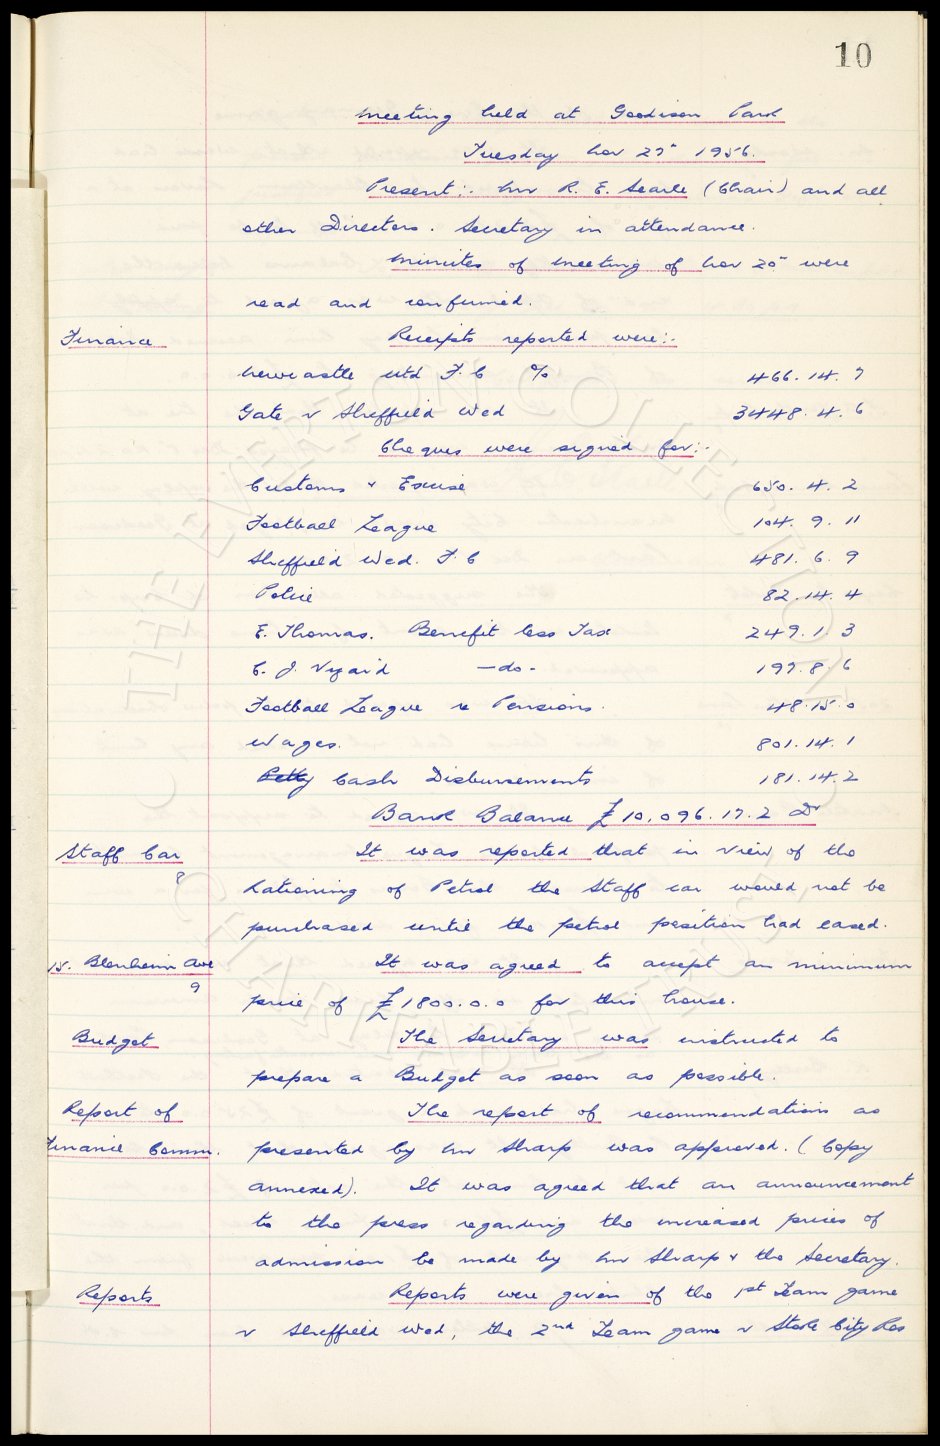 10
Meeting held at Goodison Park
Tuesday Nov 27" 1956.
Present:- Mr R. E. Searle (Chair) and all
other Directors. Secretary in attendance.
Minutes of Meeting of Nov 20" were
read and confirmed.
Finance Receipts reported were:-
Newcastle Utd F.C % 466. 14. 7
Gate v Sheffield Wed 3448. 4. 6
Cheques were signed for:-
Customs & Excise 650. 4. 2
Football League 104. 9. 11
Sheffield Wed. F.C 481. 6. 9
Police 82. 14. 4
E. Thomas. Benefit less Tax 249. 1. 3
C. J. Vizard -do- 197. 8. 6
Football League re Pensions. 48. 15. 0
Wages. 801. 14. 1
Petty Cash Disbursements 181. 14. 2
Bank Balance £10,096. 17. 2 Dr
Staff Car It was reported that in view of the
8 Rationing of Petrol the Staff car would not be
purchased until the petrol position had eased.
15. Blenheim Ave It was agreed to accept an minimum
9 price of £1800. 0. 0 for this house.
Budget The Secretary was instructed to
prepare a Budget as soon as possible.
Report of The report of recommendations as
Finance Comm. presented by Mr Sharp was approved. (Copy
annexed). It was agreed that an announcement
to the press regarding the increased prices of
admission be made by Mr Sharp & the Secretary.
Reports Reports were given of the 1st Team game
v Sheffield Wed, the 2nd Team game v Stoke City Res
THE EVERTON COLLECTION
CHARITABLE TRUST